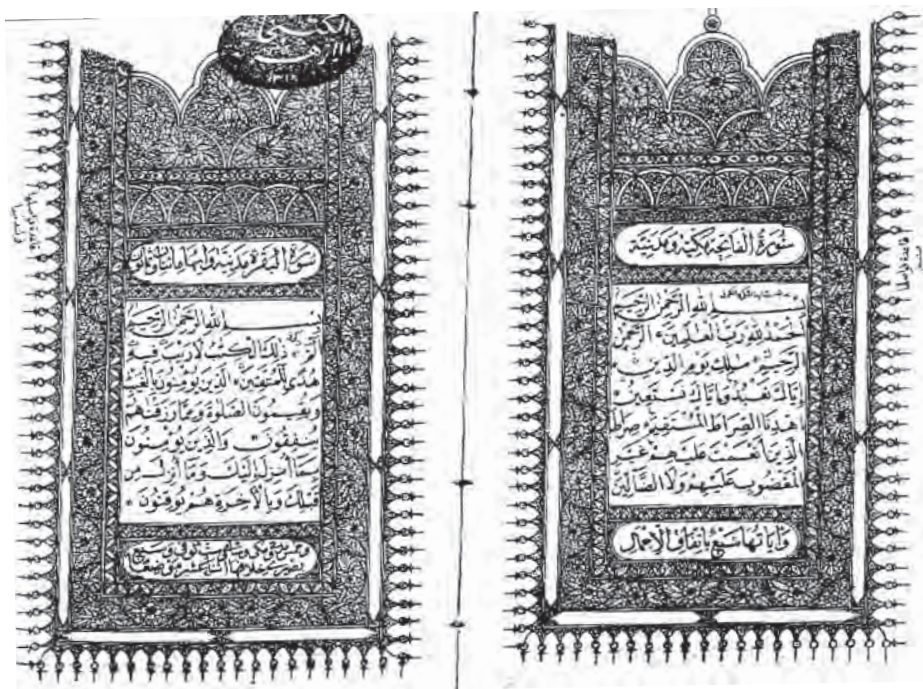 سورة الفاتحة مكية ومدنية
بسم الله الرحمن الرحيم
الحمد لله رب العلمين الرحمن
الرحيم ملك يوم الدين
اياك نعبد واياك نستعين
اهدنا الصراط المستقيم صراط
الذين انعمت عليهم غير
المغضوب عليهم ولا الضالين
واياتها سبع باتفاق الاجمال
سورة البقرة مدنية وايها مائتان وثمان
بسم الله الرحمن الرحيم
الم ذلك الكتب لا ريب فيه
هدى للمتقين الذين يؤمنون بالغيب
ويقيمون الصلوة ومما رزقنهم
ينفقون والذين يؤمنون
بما أنزل اليك وما أنزل من
قبلك وبالاخرة هم يوقنون